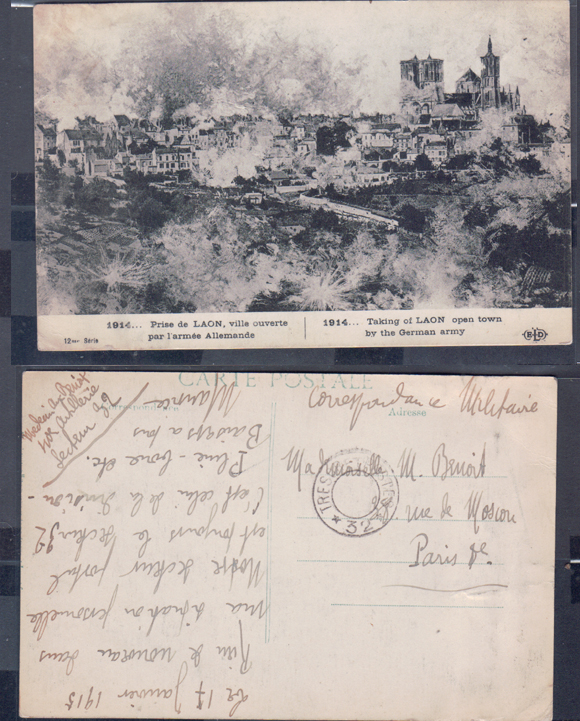 1914... Prise de LAON, ville ouverte
par l'armée Allemande
1914... Taking of LAON open town
by the German army
12me Série
ELD
CARTE POSTALE
Correspondance
Adresse
Correspondance Militaire
Médecin aux. Benoit
artillerie
Secteur 92
Mademoiselle M. Benoit
rue de Moscou
Paris
TRESOR ET POSTES
* 32 *
Le 17 Janvier 1915
Rien de nouveau dans
ma situation personnelle
Notre secteur postal
est toujours le secteur 92
C'est celui de la division -
Pluie - boue etc.
Baisers à tous
Maurice